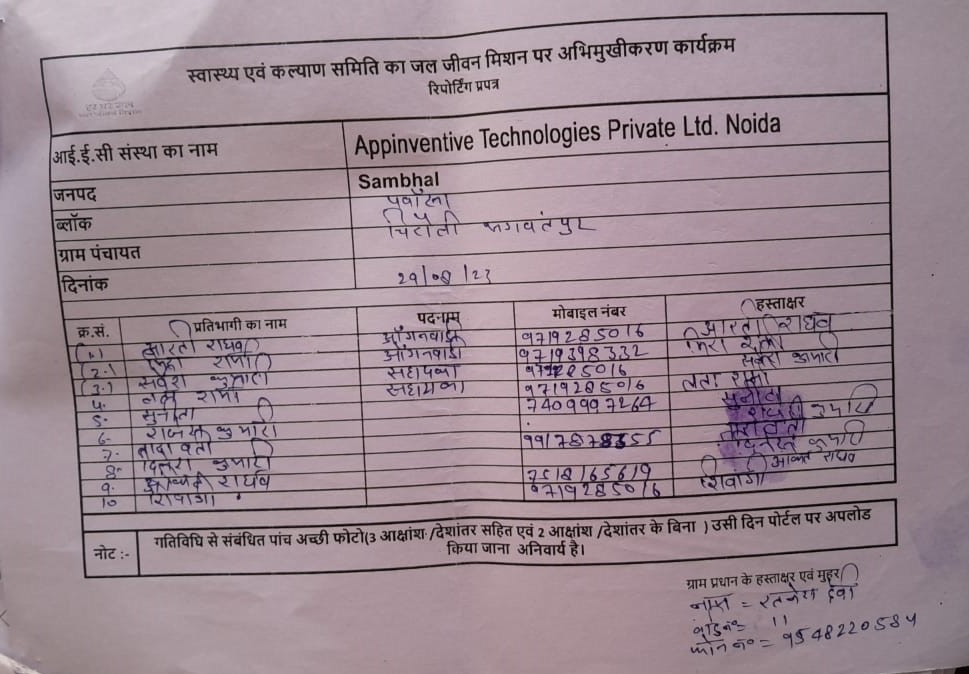 स्वास्थ्य एवं कल्याण समिति का जल जीवन मिशन पर अभिमुखीकरण कार्यक्रम
रिपोर्टिंग प्रपत्र
हर घर जल
आई.ई.सी संस्था का नाम Appinventive Technologies Private Ltd. Noida
जनपद Sambhal
ब्लॉक पवांसा
ग्राम पंचायत भगवंतपुर
दिनांक 29/08/23
क्र.सं. प्रतिभागी का नाम पदनाम मोबाइल नंबर हस्ताक्षर
(1.) आरती राघव आँगनवाड़ी 9719285016 आरती राघव
(2.) आँगनवाडी 9719398332
(3.) कुमारी सहायका 9719285016 कुमारी
४. लता शर्मा सहायका 9719285016 लता शर्मा
५. सुनीता 7409997264 सुनीता
६. राजकुमारी कुमारी
७. तारावती 9917878355
8. कुमारी कुमारी
9. राघव 7518165619 राघव
10 शिवांगी 9719285016 शिवांगी
नोट :- गतिविधि से संबंधित पांच अच्छी फोटो(3 आक्षांश /देशांतर सहित एवं 2 आक्षांश /देशांतर के बिना ) उसी दिन पोर्टल पर अपलोड
किया जाना अनिवार्य है।
ग्राम प्रधान के हस्ताक्षर एवं मुहर
नाम = देवी
वार्ड नं० 11
फोन नं० = 9548220584